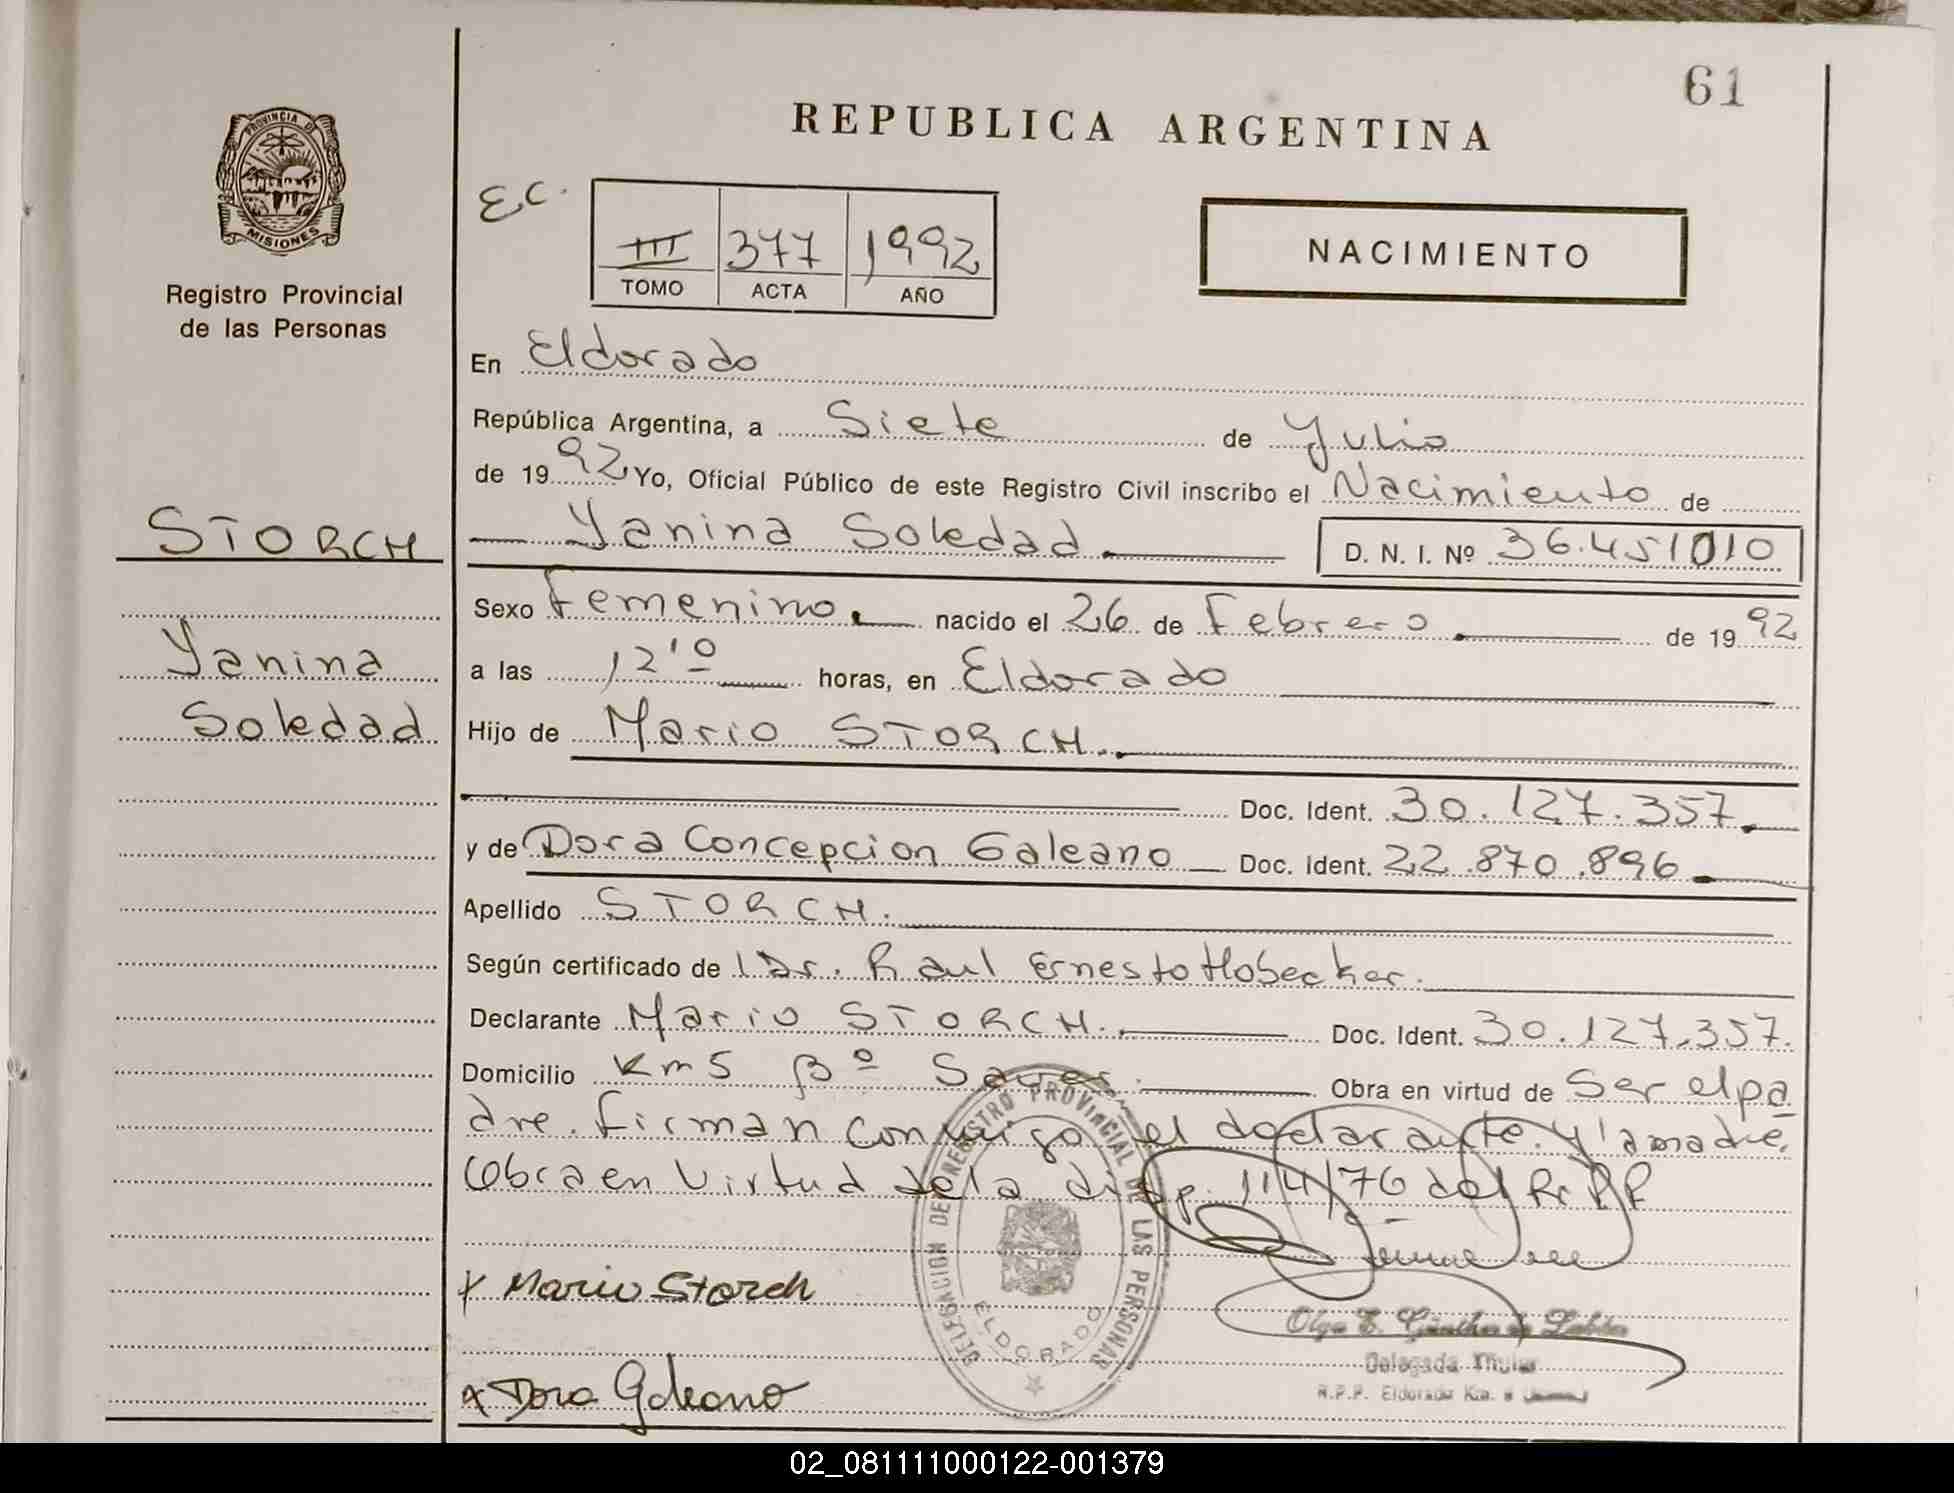 61
REPUBLICA ARGENTINA
PROVINCIA DE
MISIONES
Registro Provincial
de las Personas
EC.
III 377 1992
TOMO ACTA AÑO
NACIMIENTO
En Eldorado
República Argentina, a Siete de Julio
de 1992 Yo, Oficial Público de este Registro Civil inscribo el Nacimiento de
STORCH
Yanina Soledad D. N. I. Nº 36.451010
Sexo Femenino. nacido el 26 de Febrero de 1992
Yanina
a las 12'º horas, en Eldorado
Soledad
Hijo de Mario STORCH.
Doc. Ident. 30.127.357.
y de Dora Concepcion Galeano Doc. Ident. 22.870.896
Apellido STORCH.
Según certificado de l Dr. Raul Ernesto Hobecker.
Declarante Mario STORCH. Doc. Ident. 30.127.357.
Domicilio Km5 Bº Obra en virtud de Ser el pa
dre. firman conmigo el declarante y la madre.
Obra en Virtud de la disp. 114/76 del R.P.P
DELEGACION DE REGISTRO PROVINCIAL DE LAS PERSONAS
ELDORADO
x Mario Storch
Olga E. Günther de
Delegada Titular
R.P.P. Eldorado Km.
x Dora Galeano
02_081111000122-001379